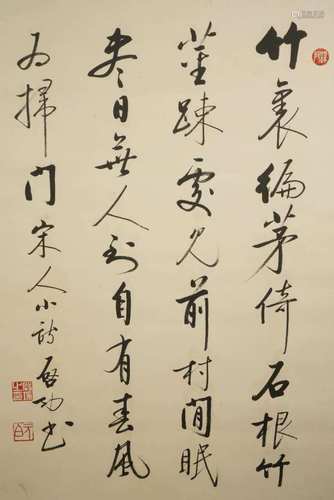 竹裏編茅倚石根竹
莖疎處見前村閒眠
盡日無人到自有春風
為掃門宋人小詩啓功書